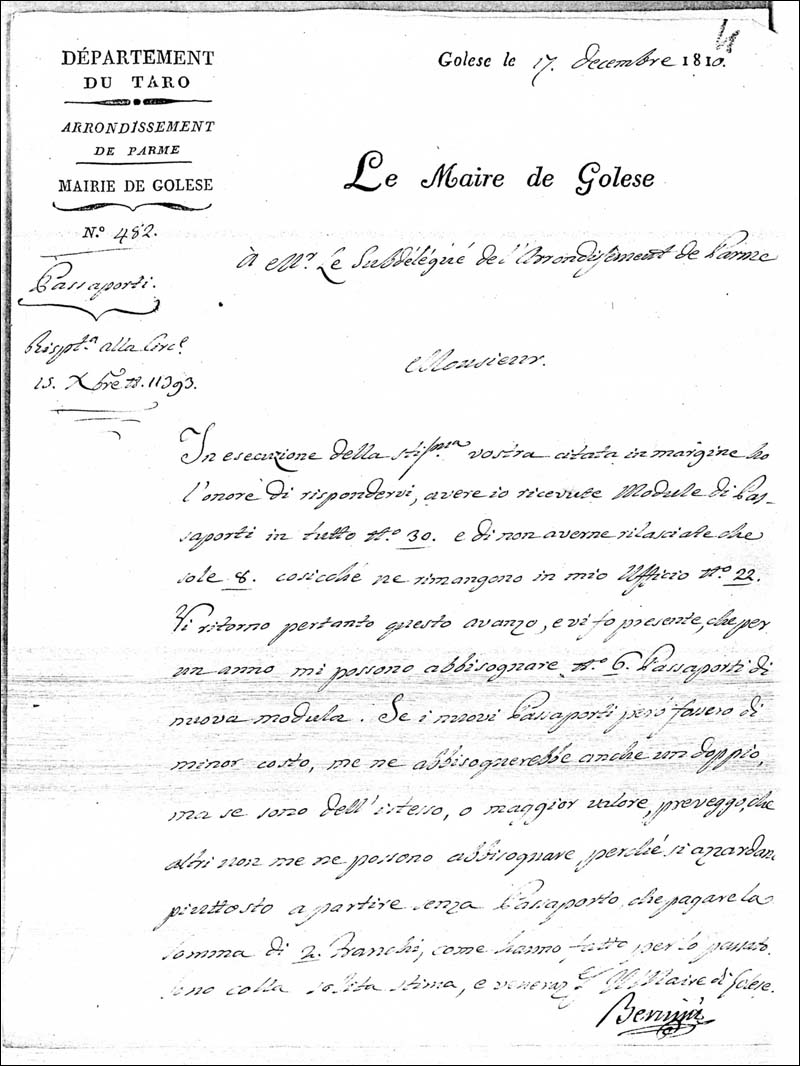 4
DÉPARTEMENT
DU TARO
ARRONDISSEMENT
DE PARME
MAIRIE DE GOLESE
N.º 482.
Passaporti.
Rispta. alla Circe.
15. Xbre. n. 11393.
Golese le 17. decembre 1810.
Le Maire de Golese
à Mr. Le Subdélégué de l'Arrondissement de Parme
Monsieur.
In esecuzione della stisma. vostra citata in margine ho
l'onore di rispondervi, avere io ricevute Module di Pas-
saporti in tutto N.º 30. e di non averne rilasciate che
sole 8. cosicché ne rimangono in mio Ufficio N.º 22.
Vi ritorno pertanto questo avanzo, e vi fo presente, che per
un anno mi possono abbisognare N.º 6. Passaporti di
nuova modula. Se i nuovi Passaporti però fossero di
minor costo, me ne abbisognerebbe anche un doppio,
ma se sono dell'istesso, o maggior valore, preveggo, che
altri non me ne possono abbisognare, perché si azardano
piuttosto a partire senza Passaporto, che pagare la
somma di 2. Franchi, come hanno fatto per lo passato.
Sono colla solita stima, e veneraz. Il Maire di Golese.